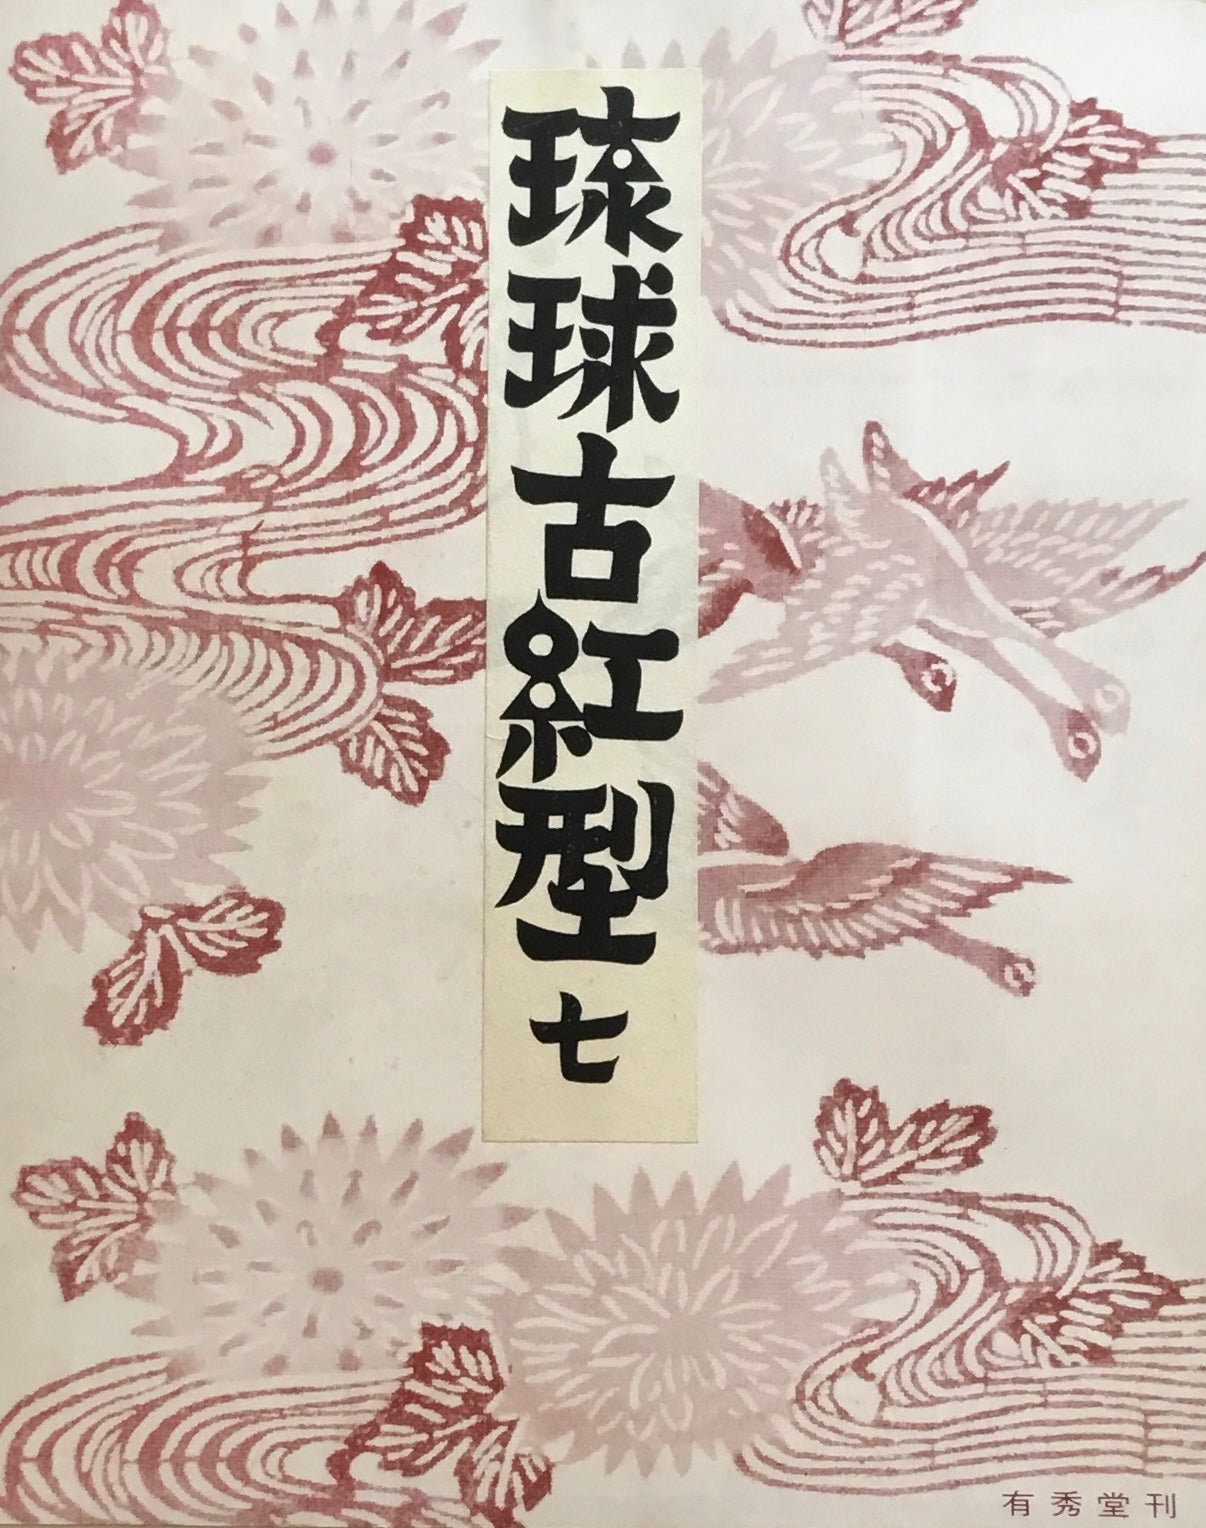 琉球古紅型 七
有秀堂刊